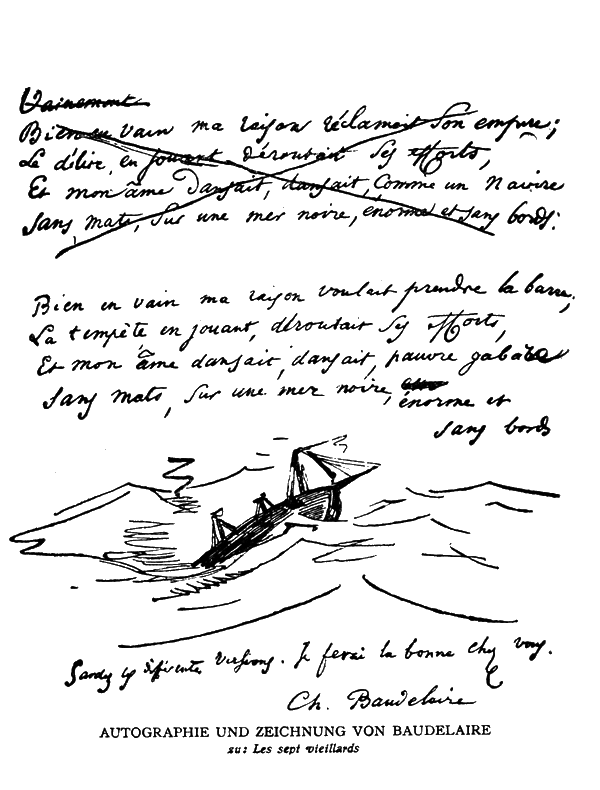 Vainement
Bien en vain ma raison réclamait son empire;
Le délire, en jouant, déroutait ses efforts,
Et mon âme dansait, dansait, comme un navire
Sans mats, sur une mer noire, énorme et sans bords:
Bien en vain ma raison voulait prendre la barre;
La tempête en jouant, déroutait ses efforts,
Et mon âme dansait, dansait, pauvre gabare
Sans mats, sur une mer noire, énorme et
sans bords
Gardez les différentes versions. Je ferai la bonne chez vous.
Ch. Baudelaire
AUTOGRAPHIE UND ZEICHNUNG VON BAUDELAIRE
zu: Les sept vieillards